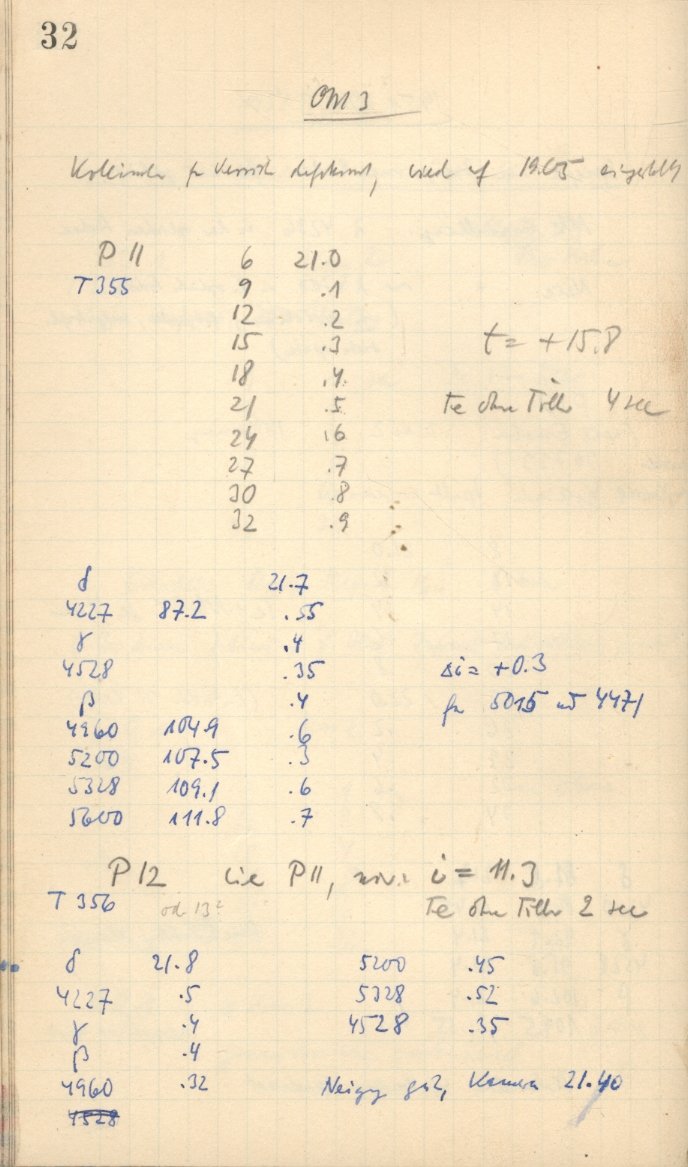 32
OM 3
Kollimator defokussiert, wird auf 19.05 eingestellt
P 11 6 21.0
T 355 9 .1
12 .2
15 .3
t = +15.8
18 .4
21 .5 Te ohne Filter 4 sec
24 .6
27 .7
30 .8
32 .9
δ 21.7
4227 87.2 .55
γ .4
4528 .35 Δi = +0.3
β .4 für 5015 und 4471
4960 104.9 .6
5200 107.5 .3
5328 109.1 .6
5600 111.8 .7
P 12 wie P 11, i = 11.3
T 356 Te ohne Filter 2 sec
δ 21.8 5200 .45
4227 .5 5328 .52
γ .4 4528 .35
β .4
4960 .32 Neigung gut, Kamera 21.40
4528